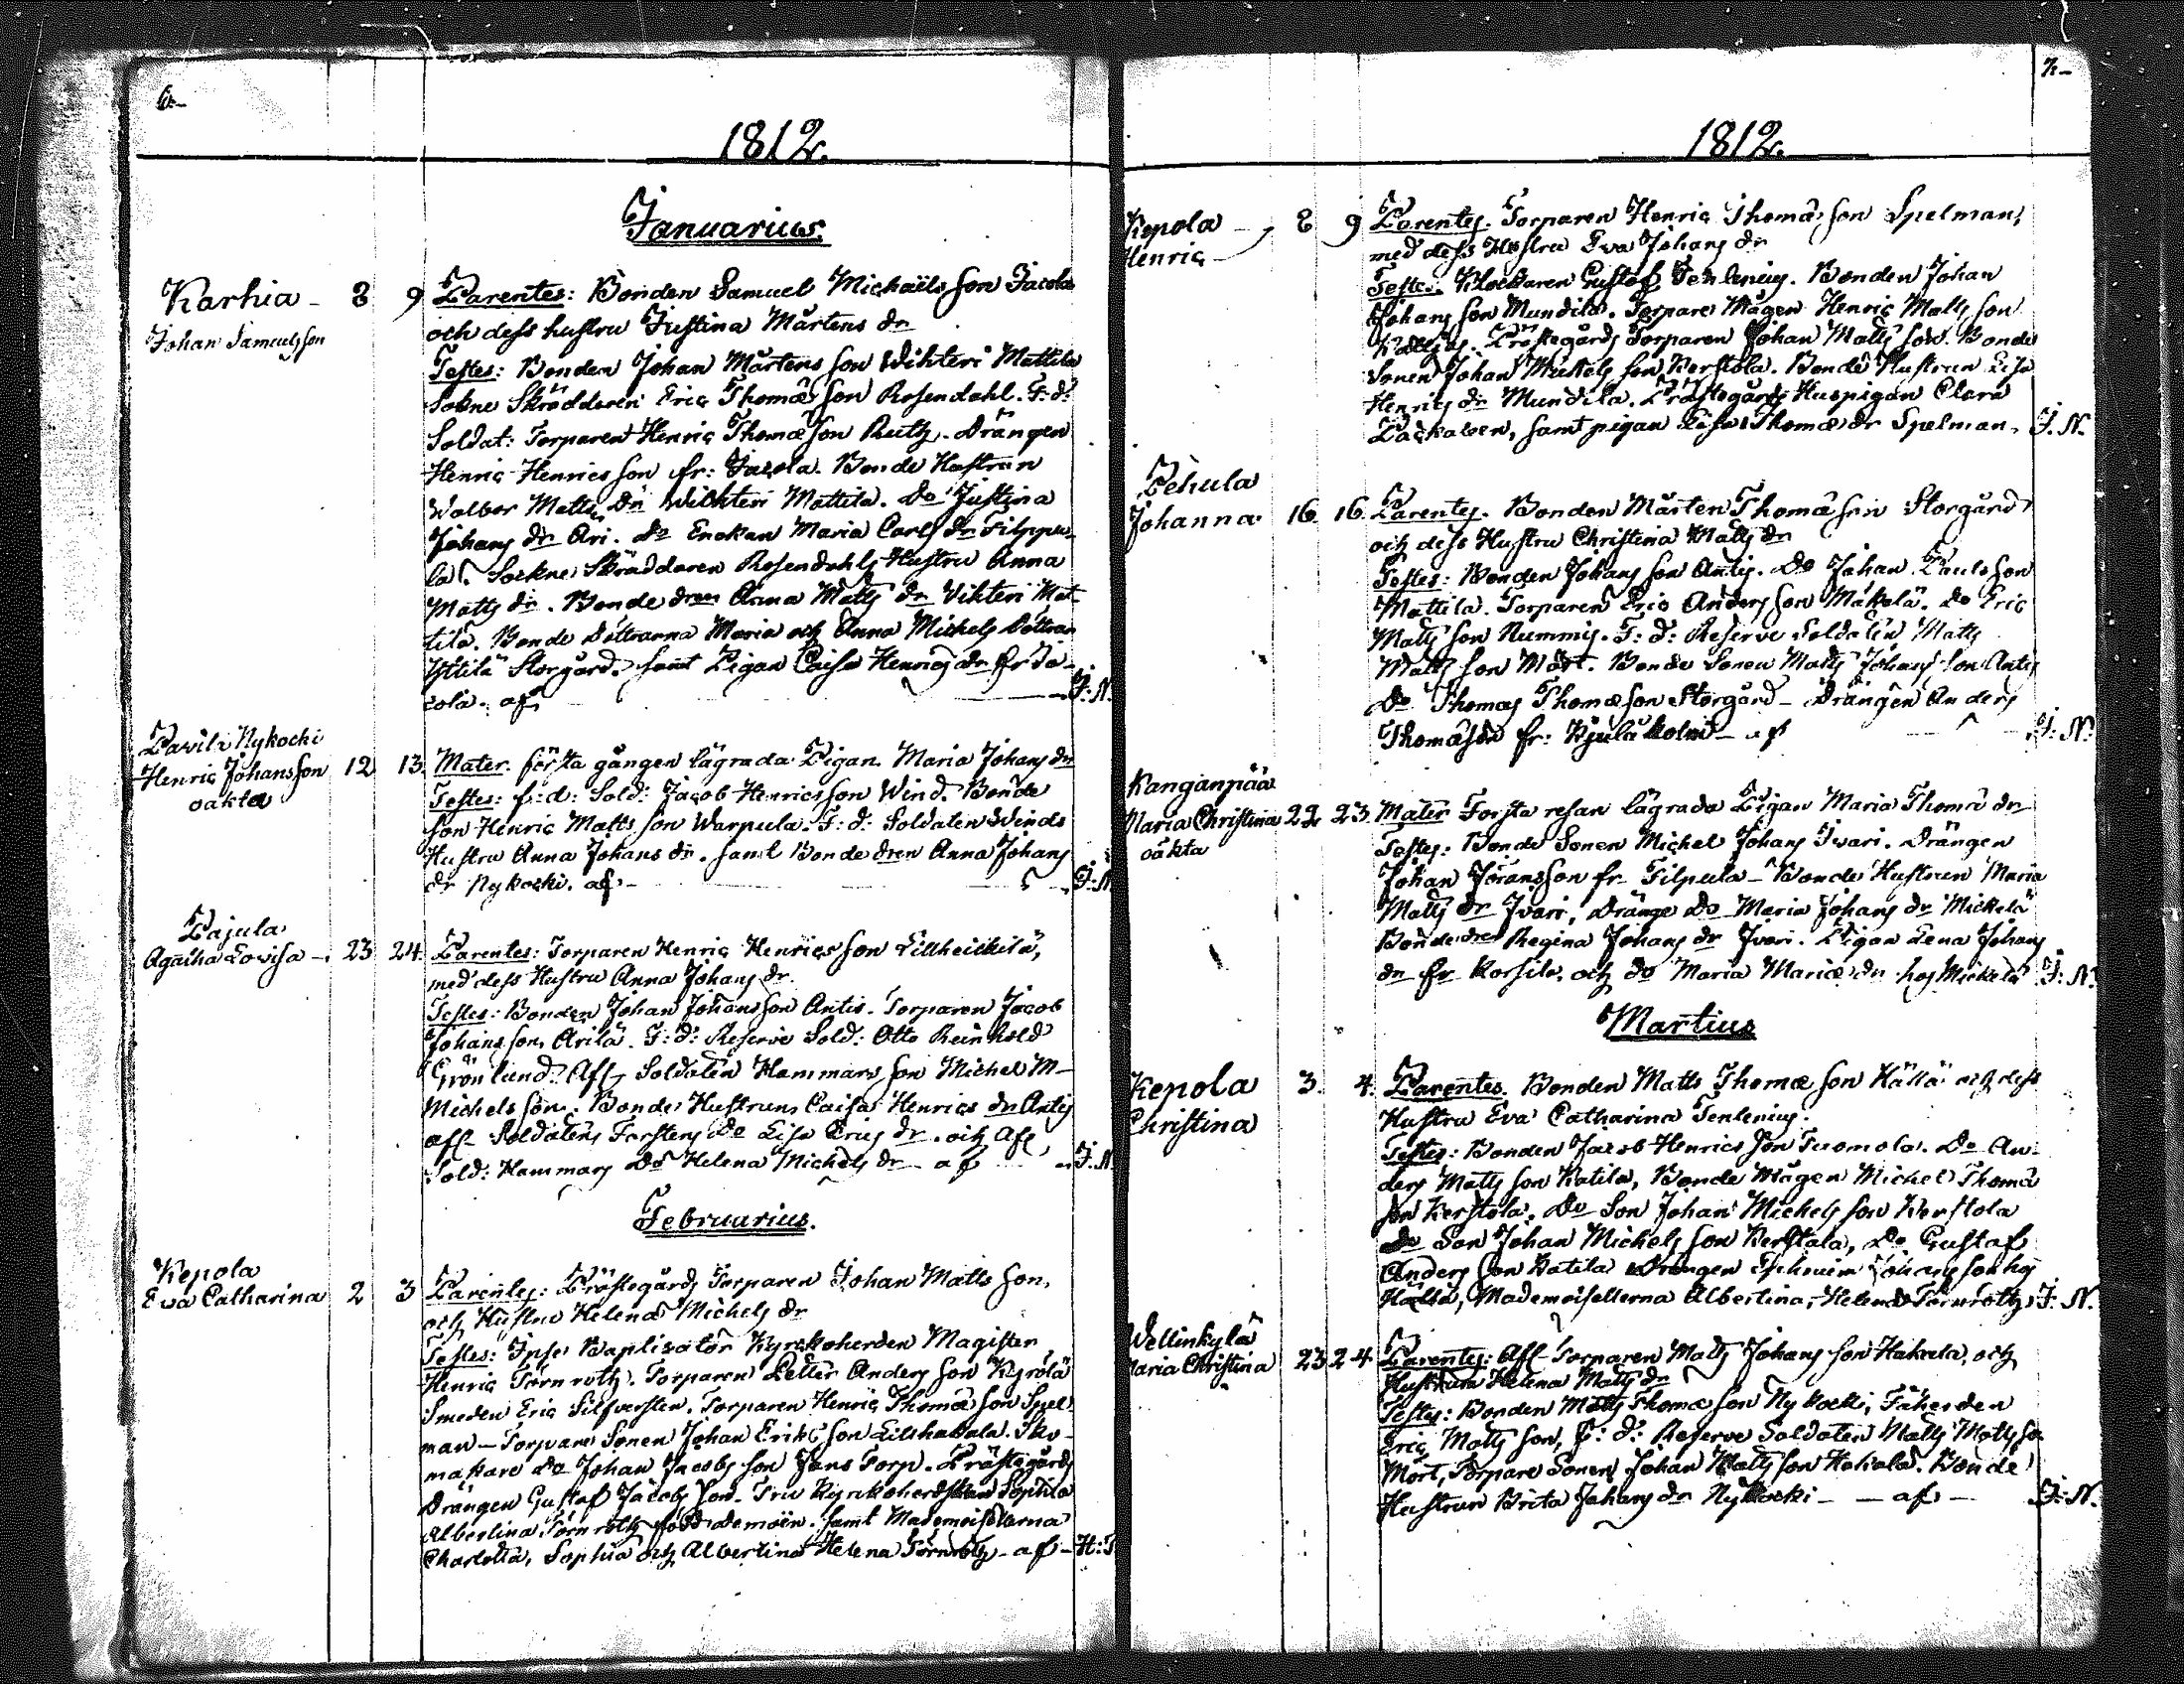 6.
1812.
Januarius.
Karhia - 8 9 Parentes: Bonden Samuel Michaëlsson Jacola
Johan Samuelsson och dess hustru Justina Mårtens dr
Testes: Bonden Johan Mårtensson Wihteri Mattila
Sokne Skräddaren Eric Thomæson Rosendahl. F: d:
Soldat: Torparen Henric Thomæson Ruth. Drängen
Henric Henricsson fr: Jacola. Bonde Hustrun
Walbor Matts Dr Wichteri Mattila. Do Justina
Johans dr Ari. Do Enekan Maria Carls dr Filppu-
la. Sockne Skräddaren Rosendahls Hustru Anna
Matts dr. Bonde dren Anna Matts dr Vikteri Mat-
tila. Bonde Döttrarna Maria och Anna Michels Döttrar
Storgård. samt Pigan Caisa Henrics dr fr Ja-
cola. af J: N.
Pavila Nykocki
Henric Johansson 12 13. Mater. första gången lägrada Pigan Maria Johans dr
oäkta Testes: f: d: Sold: Jacob Henricsson Wind. Bonde
son Henric Mattsson Warpula. F: d: Soldaten Winds
Hustru Anna Johans dr. samt Bonde dren Anna Johans
dr Nykocki. af - J: N
Pajula
Agatha Lovisa - 23 24. Parentes: Torparen Henric Henricsson Lillheickilä,
med dess Hustru Anna Johans dr.
Testes: Bonden Johan Johansson Antis. Torparen Jacob
Johansson Arila. F: d: Reserve Sold: Otto Reinhold
Grönlund. Afs. Soldaten Hammars son Michel M-
Michelsson. Bonde Hustrun Caisa Henrics dr Antis
afs. Soldatens Forstens Do Lisa Erics dr. och Afs.
Sold: Hammars Do Helena Michels dr - af - J. N
Februarius.
Kepola
Eva Catharina 2 3 Parentes: Prästegårds Torparen Johan Mattsson,
och Hustru Helena Michels dr
Testes: Ipse Baptisator Kyrkoherden Magister
Henric Törnroth. Torparen Petter Andersson Kyrölä
Smeden Eric Silfversten. Torparen Henric Thomæson Spel-
man - Torpare Sonen Johan Eriksson Lillhakala. Sko-
makare Do Johan Jacobsson Jans Torp. Prästegårds
Drängen Gustaf Jacobsson. Fru Kyrkoherdskan Sophia
Albertina Törnroth född demoën. samt Mademoisellerna
Charlotta, Sophia och Albertina Helena Törnroth - af - H: T
7.
1812.
Kepola - 8 9 Parentes. Torparen Henric Thomæson Spelman,
Henric med dess Hustru Eva Johans dr
Testes. Klockaren Gustaf Tenlenius. Bonden Johan
Johansson Mundila. Torpare Mågen Henric Mattsson
Prästegårds Torparen Johan Mattsson. Bonde
Sonen Johan Michelsson Kerstola. Bonde Hustrun Lisa
Henrics dr Mundila. Prästegårds Huspigan Clara
Packalen, samt pigan Lisa Thomæ dr Spelman. J. N.
Pehula
Johanna 16 16 Parentes. Bonden Mårten Thomæson Storgård
och dess Hustru Christina Matts dr
Testes: Bonden Johansson Antis. Do Johan Paulsson
Mattila. Torparen Eric Andersson Mäkelä. Do Eric
Mattsson Nummis. F: d: Reserve Soldaten Matts
Mattsson Mört. Bonde Sonen Matts Johansson Antis
Do Thomas Thomæson Storgård - Drängen Anders
Thomæson fr: Kjuläholm - af J: N.
Kanganpää
Maria Christina 22 23 Mater Första resan lägrade Pigan Maria Thomæ dr
oäkta Testes: Bonde Sonen Michel Johans Ivari. Drängen
Johan Jöransson fr Filpula - Bonde Hustrun Maria
Matts dr Ivari, Dränge Do Maria Johans dr Mickelä
Bonde dren Regina Johans dr Ivari. Pigan Lena Johans
dr fr Korsila, och do Maria Mariæ dr hos Mickelä J: N.
Martius
Kepola 3. 4. Parentes. Bonden Matts Thomæson Hällä och dess
Christina Hustru Eva Catharina Tenlenius.
Testes: Bonden Jacob Henricsson Tuomola. Do An-
ders Mattsson Katila, Bonde Mågen Michel Thomæ
son Kerstola. Do Son Johan Michelsson Kerstola
do Son Johan Michelsson Kerstala, Do Gustaf
Andersson Katila Drängen Ephraim Johansson hos
Hällä, Mademoisellerna Albertina, Helena Törnroth J. N.
Wellinkylä
Maria Christina 23 24 Parentes: Afs. Torparen Matts Johansson Hakala, och
Hustrun Helena Matts dr
Testes: Bonden Matts Thomæson Nykocki, Fäherden
Eric Mattsson, f: d: Reserve Soldaten Matts Mattsson
Mört, Torpare Sonen Johan Mattsson Hakala. Bonde
Hustrun Brita Johans dr Nykocki - - af - J: N.